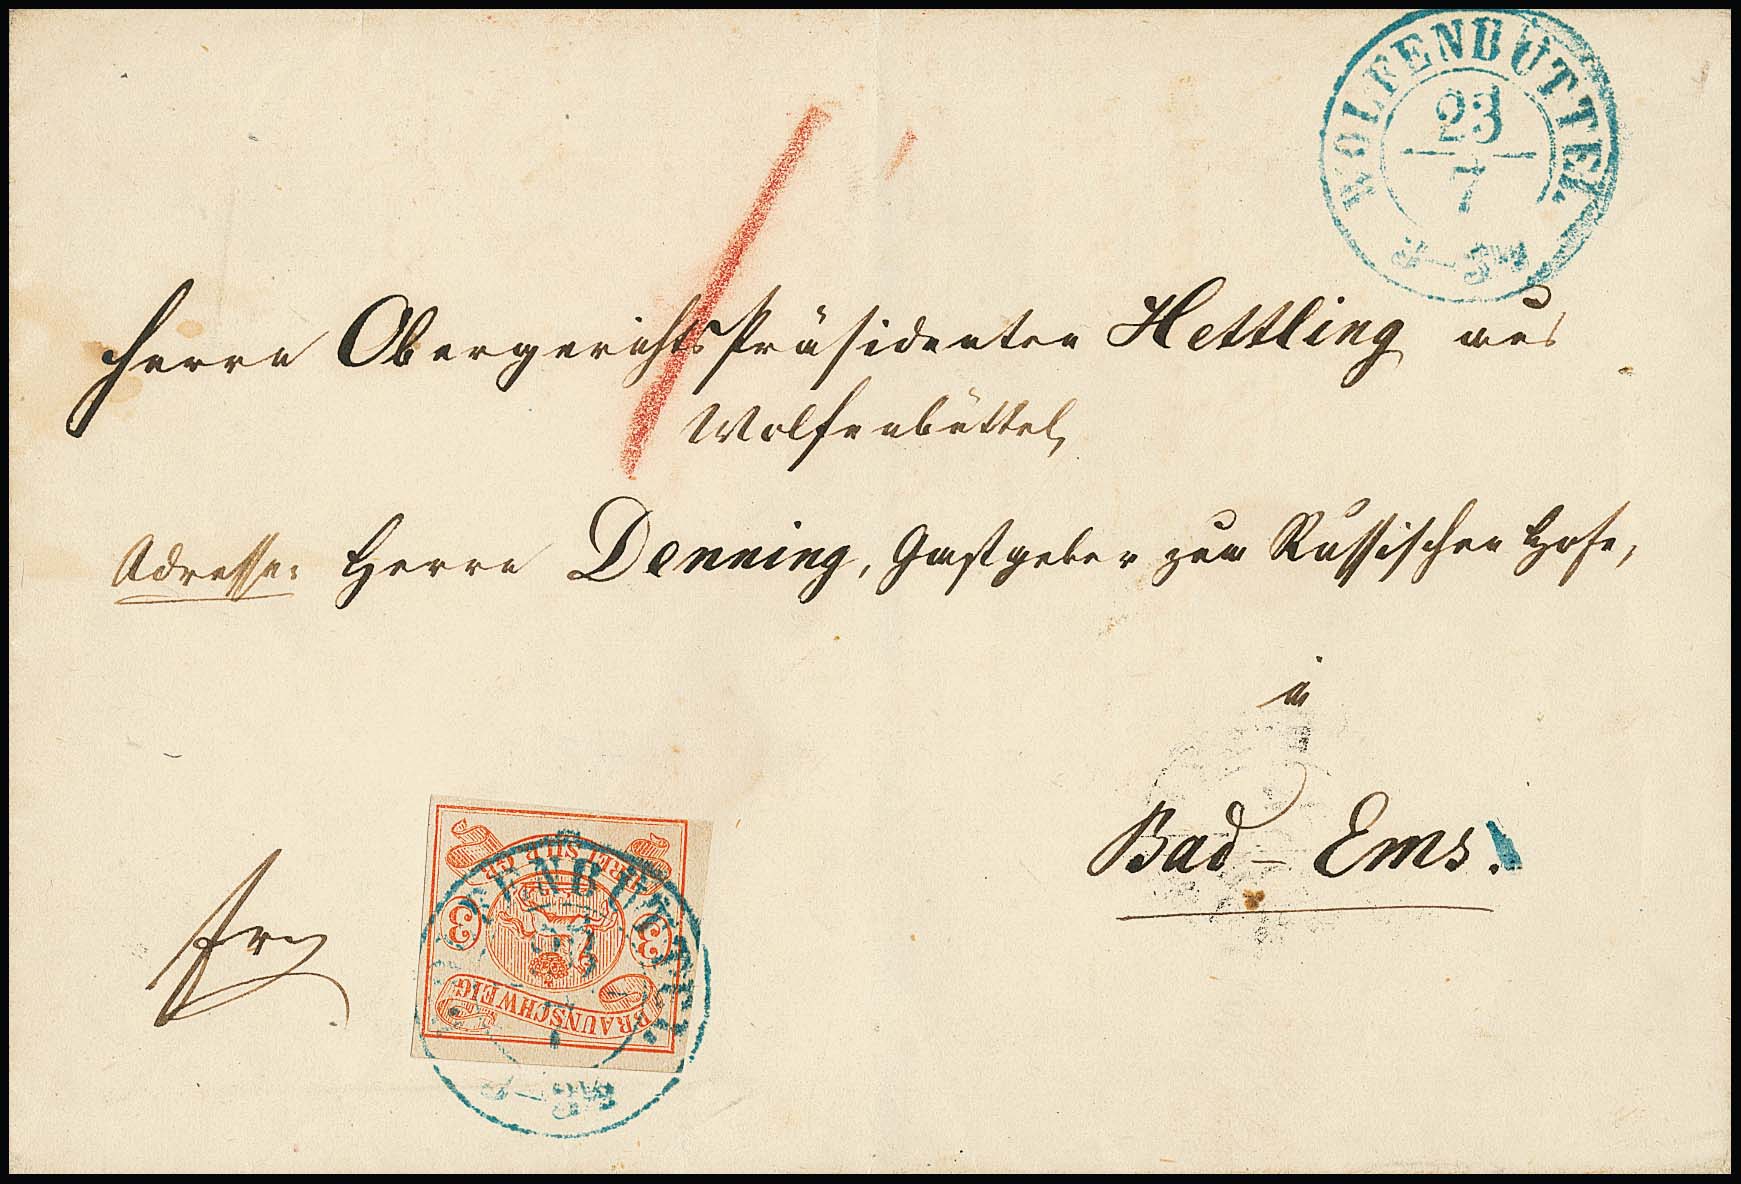 WOLFENBÜTTEL
23
7
2-3
Herrn Obergerichts Präsidenten Hettling aus
Wolfenbüttel,
Adresse: Herrn Denning, Gastgeber zum Russischen Hofe,
in
Bad-Ems.
frco
DREI SILB. GR.
3 3
BRAUNSCHWEIG
WOLFENBÜTTEL
23
7
2-3